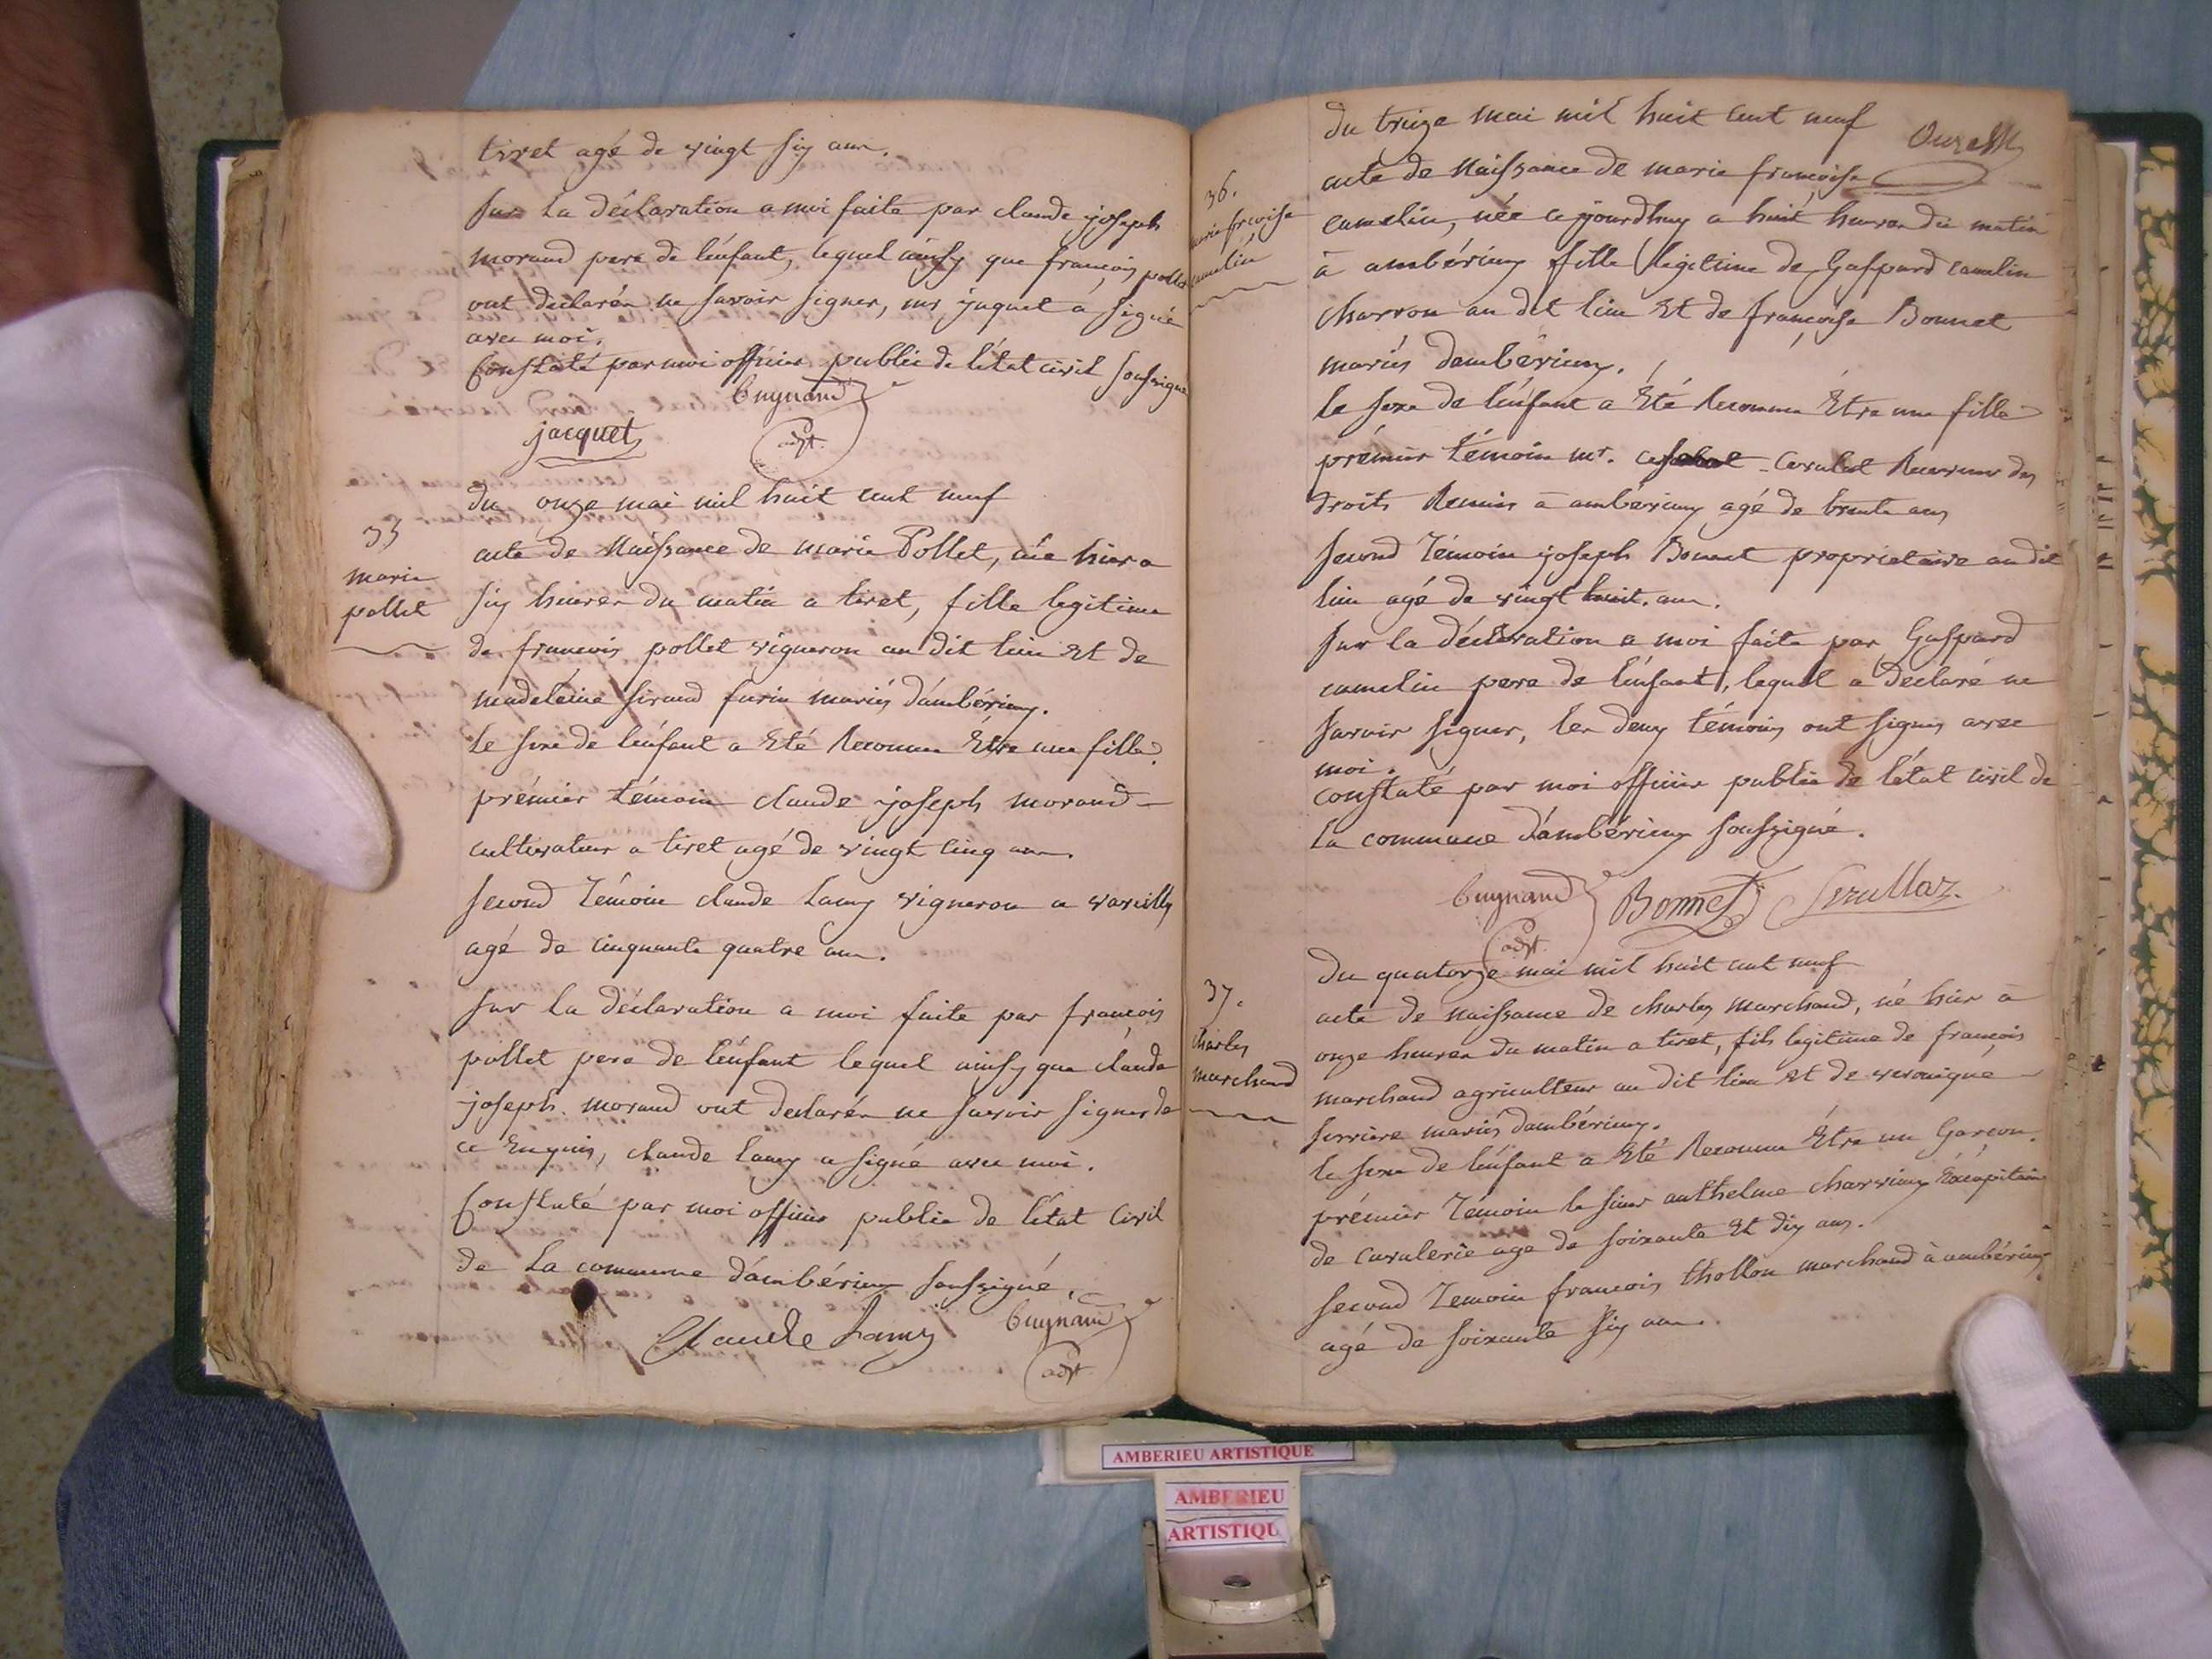 tiret agé de vingt six ans.
sur la déclaration a moi faite par claude joseph
morand pere de l'énfant, lequel ainsy que françois pollet
ont declarés ne savoir signer, mr jaquet a signé
avec moi.
Constaté par moi officier public de l'état civil soussigné
jacquet
adjt.
du onze mai mil huit cent neuf
35
marie
pollet
acte de Naissance de marie Pollet, née hier a
six heures du matin a tiret, fille legitime
de françois pollet vigneron au dit lieu Et de
madeleine sirand furin mariés d'ambérieux.
Le sexe de l'énfant a Eté Reconnu Être une fille.
prémier témoin claude joseph morand
cultivateur a tiret agé de vingt cinq ans.
second Témoin claude Lamy vigneron a vareilles
agé de cinquante quatre ans.
sur la déclaration a moi faite par françois
pollet pere de l'énfant lequel ainsy que claude
joseph morand ont declarés ne savoir signer de
ce Enquis, claude lamy a signé avec moi.
Constaté par moi officier public de l'état Civil
de La commune d'ambérieux soussigné.
Claude Lamy
adjt.
du treize mai mil huit cent neuf
36.
marie frçoise
camelin
acte de Naissance de marie françoise
camelin, née ce jourdhuy a huit heures du matin
à ambérieux fille legitime de Gaspard camelin
charron au dit lieu Et de françoise Bonnet
mariés dambérieux.
le sexe de l'énfant a Été Reconnu Être une fille
prémier témoin mr. Receveur des
droits Reunis à ambérieux agé de trente ans
second Témoin joseph Bonnet proprietaire au dit
lieu agé de vingt huit ans.
sur la déclaration a moi faite par Gaspard
camelin pere de l'énfant, lequel a declaré ne
savoir signer, les deux témoins ont signés avec
moi.
constaté par moi officier public de l'état civil de
la commune d'ambérieux soussigné.
Bonnet
adjt.
du quatorze mai mil huit cent neuf
37.
charles
marchand
acte de naissance de charles marchand, né hier à
onze heures du matin a tiret, fils legitime de françois
marchand agriculteur au dit lieu Et de veronique
serriere mariés dambérieux.
le sexe de l'énfant a Eté Reconnu Être un Garçon.
prémier Témoin le sieur anthelme charvieux Excapitaine
de cavalerie age de soixante Et dix ans.
second Temoin françois thollon marchand à ambérieux
agé de soixante six ans.
AMBERIEU ARTISTIQUE
AMBERIEU
ARTISTIQU